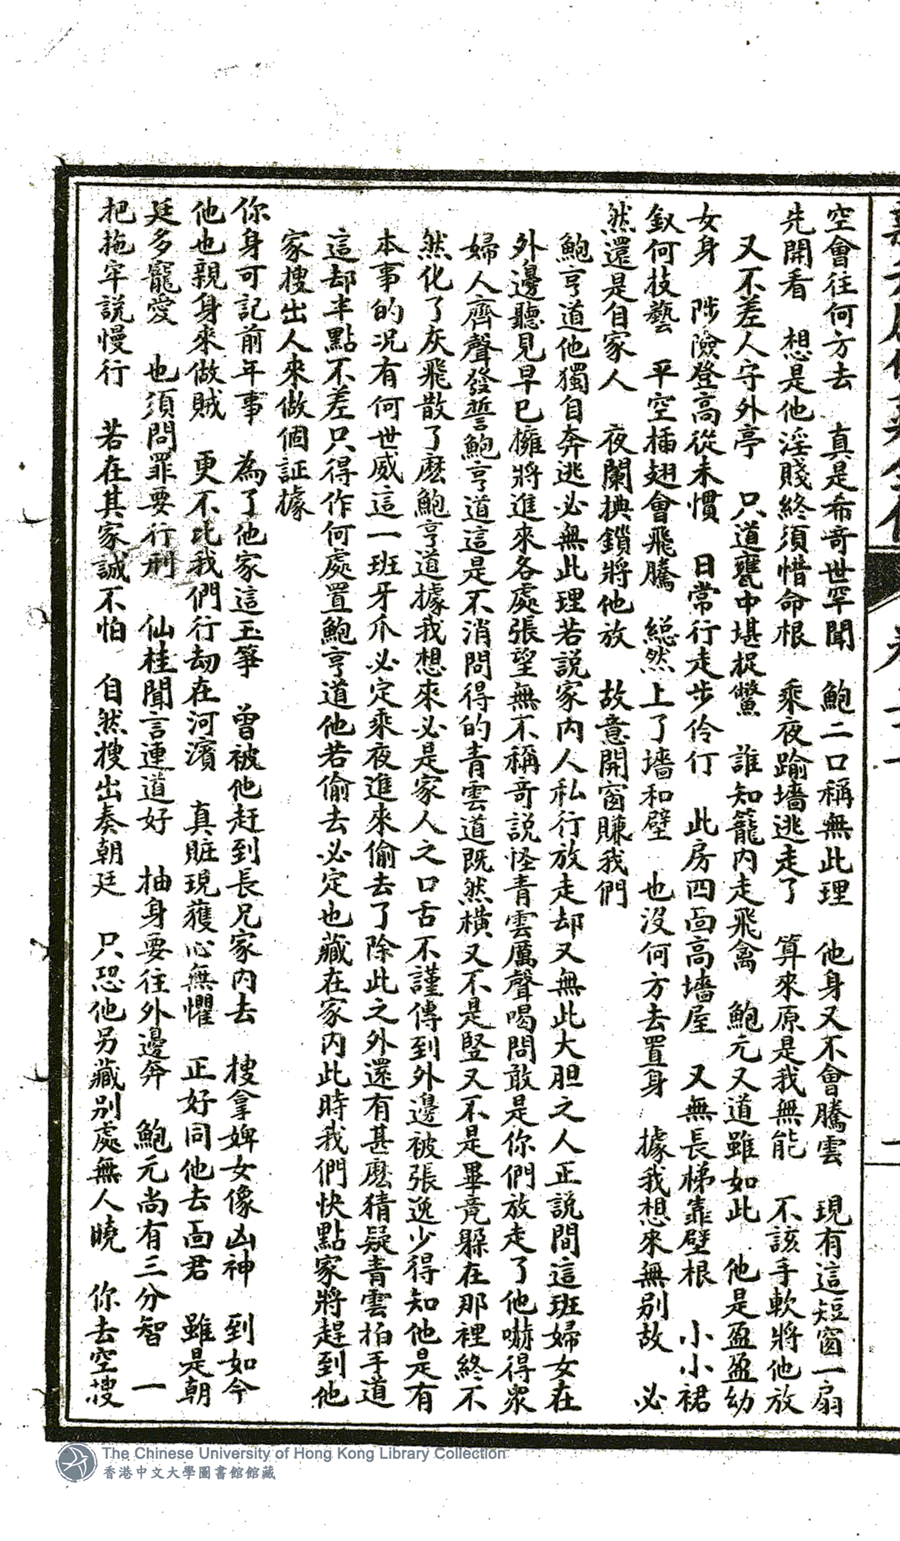 空會往何方去　真是希奇世罕聞　鮑二口稱無此理　他身又不會騰雲　現有這短窗一扇
先開看　想是他淫賤終須惜命根　乘夜踰墻逃走了　算來原是我無能　不該手軟將他放
又不差人守外亭　只道甕中堪捉鱉　誰知籠內走飛禽　鮑元又道雖如此　他是盈盈幼
女身　陟險登高從未慣　日常行走步伶仃　此房四面高墻屋　又無長梯靠壁根　小小裙
釵何技藝　平空插翅會飛騰　縂然上了墻和壁　也沒何方去置身　據我想來無别故　必
然還是自家人　夜闌㨪鎖將他放　故意開窗賺我們
鮑亨道他獨自奔逃必無此理若說家內人私行放走却又無此大胆之人正說間這班婦女在
外邊聽見早已擁將進來各處張望無不稱奇說怪青雲厲聲喝問敢是你們放走了他嚇得衆
婦人齊聲發誓鮑亨道這是不消問得的青雲道既然橫又不是竪又不是畢竟躲在那裡終不
然化了灰飛散了麽鮑亨道據我想來必是家人之口舌不謹傳到外邊被張逸少得知他是有
本事的况有何世威這一班牙爪必定乘夜進來偷去了除此之外還有甚麽猜疑青雲拍手道
這却半點不差只得作何處置鮑亨道他若偷去必定也藏在家內此時我們快點家將趕到他
家搜出人來做個証據
你身可記前年事　為了他家這玉箏　曾被他赶到長兄家內去　搜拿婢女像凶神　到如今
他也親身來做賊　更不比我們行劫在河濱　真賍現獲心無懼　正好同他去面君　雖是朝
廷多寵愛　也須問罪要行刑　仙桂聞言連道好　抽身要往外邊奔　鮑元尚有三分智　一
把拖牢説慢行　若在其家誠不怕　自然搜出奏朝廷　只恐他另藏别處無人曉　你去空搜
The Chinese University of Hong Kong Library Collection
香港中文大學圖書館館藏